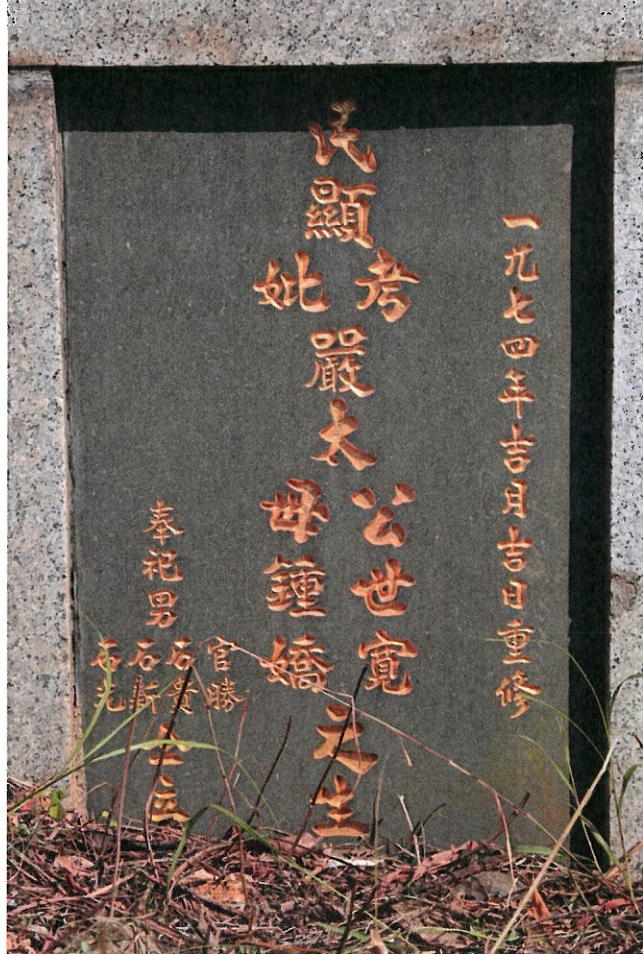 一九七四年吉月吉日重修
民顯
考
妣
嚴太
公世寬
母鍾嬌
之生
奉祀男
官勝
石貴
石新
石光
仝立